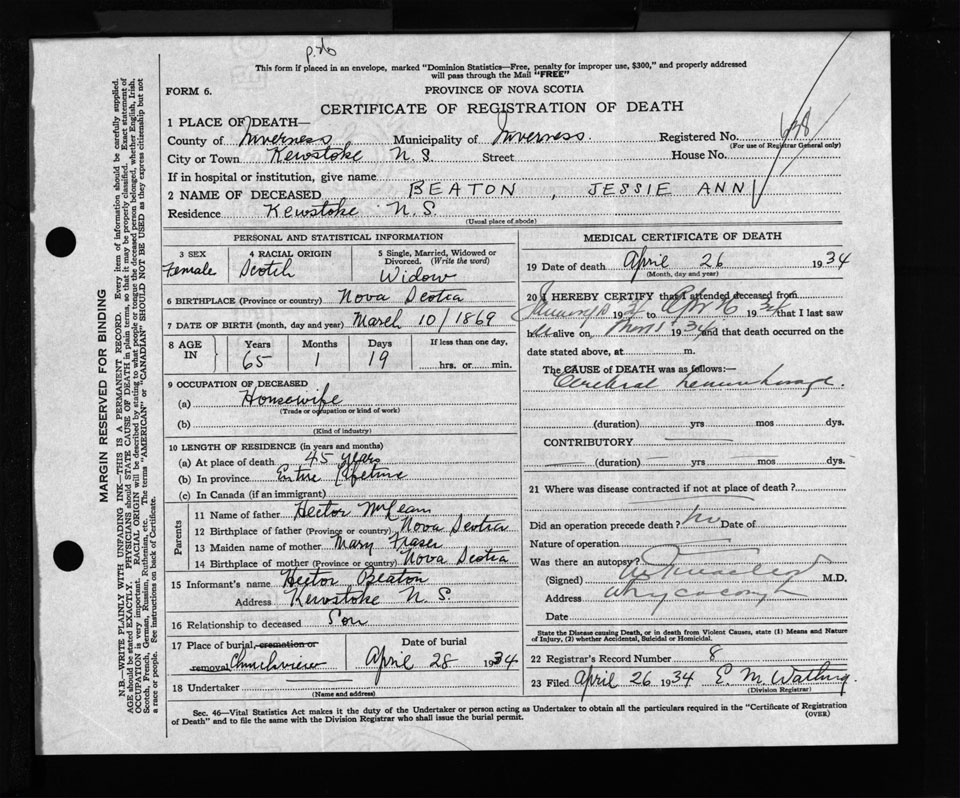 This form if placed in an envelope, marked "Dominion Statistics—Free, penalty for improper use, $300," and properly addressed
will pass through the Mail "FREE"
FORM 6.
PROVINCE OF NOVA SCOTIA
CERTIFICATE OF REGISTRATION OF DEATH
1 PLACE OF DEATH—
County of Inverness Municipality of Inverness. Registered No.
(For use of Registrar General only)
City or Town Kewstoke N.S Street House No.
If in hospital or institution, give name
2 NAME OF DECEASED BEATON, JESSIE ANN
Residence Kewstoke N.S.
(Usual place of abode)
PERSONAL AND STATISTICAL INFORMATION
3 SEX
Female
4 RACIAL ORIGIN
Scotch
5 Single, Married, Widowed or
Divorced. (Write the word)
Widow
6 BIRTHPLACE (Province or country) Nova Scotia
7 DATE OF BIRTH (month, day and year) March 10/1869
8 AGE IN
Years Months Days If less than one day,
65 1 19 hrs. or min.
9 OCCUPATION OF DECEASED
(a) Housewife
(Trade or occupation or kind of work)
(b)
(Kind of industry)
10 LENGTH OF RESIDENCE (in years and months)
(a) At place of death 45 years
(b) In province Entire lifetime
(c) In Canada (if an immigrant)
Parents
11 Name of father Hector McLean
12 Birthplace of father (Province or country) Nova Scotia
13 Maiden name of mother Mary Fraser
14 Birthplace of mother (Province or country) Nova Scotia
15 Informant's name Hector Beaton
Address Kewstoke N.S.
16 Relationship to deceased Son
17 Place of burial, cremation or
removal Churchview
Date of burial
April 28 1934
18 Undertaker
(Name and address)
MEDICAL CERTIFICATE OF DEATH
19 Date of death April 26 1934
(Month, day and year)
20 I HEREBY CERTIFY that I attended deceased from
January 193 to Apr 193 that I last saw
her alive on, 1934, and that death occurred on the
date stated above, at m.
The CAUSE of DEATH was as follows:—
Cerebral hemorrhage.
(duration) yrs mos dys.
CONTRIBUTORY
(duration) yrs mos dys.
21 Where was disease contracted if not at place of death?
Did an operation precede death? no Date of
Nature of operation
Was there an autopsy?
(Signed) M.D.
Address Whycocomagh
Date
State the Disease causing Death, or in death from Violent Causes, state (1) Means and Nature
of Injury, (2) whether Accidental, Suicidal or Homicidal.
22 Registrar's Record Number 8
23 Filed April 26 1934 E. M.
(Division Registrar)
Sec. 46—Vital Statistics Act makes it the duty of the Undertaker or person acting as Undertaker to obtain all the particulars required in the "Certificate of Registration
of Death" and to file the same with the Division Registrar who shall issue the burial permit.
(OVER)
MARGIN RESERVED FOR BINDING
N.B.—WRITE PLAINLY WITH UNFADING INK—THIS IS A PERMANENT RECORD. Every item of information should be carefully supplied.
AGE should be stated EXACTLY. PHYSICIANS should STATE CAUSE OF DEATH in plain terms, so that it may be properly classified. Exact statement of
OCCUPATION is very important. RACIAL ORIGIN will be described by stating to what people or tongue the deceased person belonged, whether English, Irish,
Scotch, French, German, Russian, Ruthenian, etc. The terms "AMERICAN" or "CANADIAN" SHOULD NOT BE USED as they express citizenship but not
a race or people. See instructions on back of Certificate.